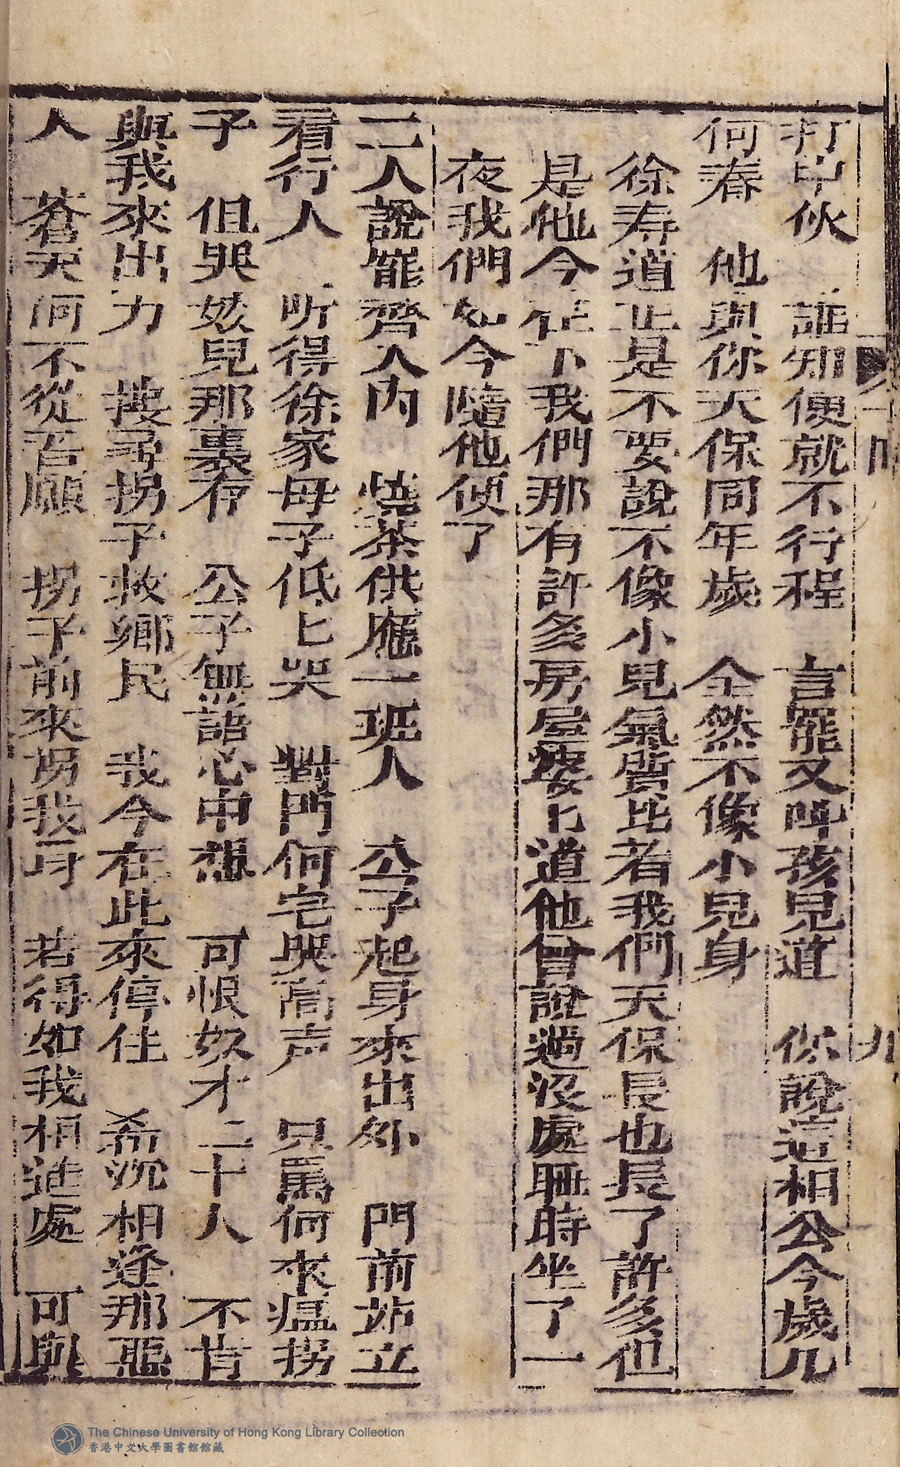 打中伙 誰知便就不行程 言罷又呌孩兒道 你說這相公今歲几
何春 他與你天保同年歲 全然不像小兒身
徐寿道正是不要說不像小兒氣質比着我們天保長也長了許多但
是他今在下我們那有許多房屋婆匕道他曾說過没處睡時坐了一
夜我們如今隨他便了
二人說罷齊入内 燒茶供應一班人 公子起身來出外 門前站立
看行人 听得徐家母子低匕哭 對門何宅哭高声 只罵何來瘟拐
子 但哭姣兒那裏存 公子無語心中想 可恨奴才二十人 不肯
與我來出力 搜尋拐子救鄉民 我今在此來停住 希沉相逢那惡
人 蒼天何不從吾願 拐子前來拐我身 若得如我相逢處 可與
九
The Chinese University of Hong Kong Library Collection
香港中文大學圖書館館藏